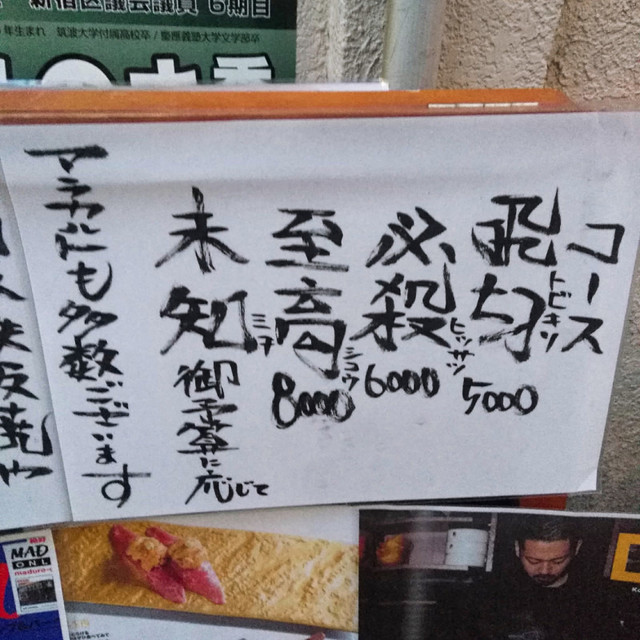 新宿区議会議員 6期目
年生まれ 筑波大学付属高校卒/慶應義塾大学文学部卒
コース
飛切 トビキリ 5000
必殺 ヒッサツ 6000
至高 シコウ 8000
未知 ミチ 御予算に応じて
多数ございます
MAD